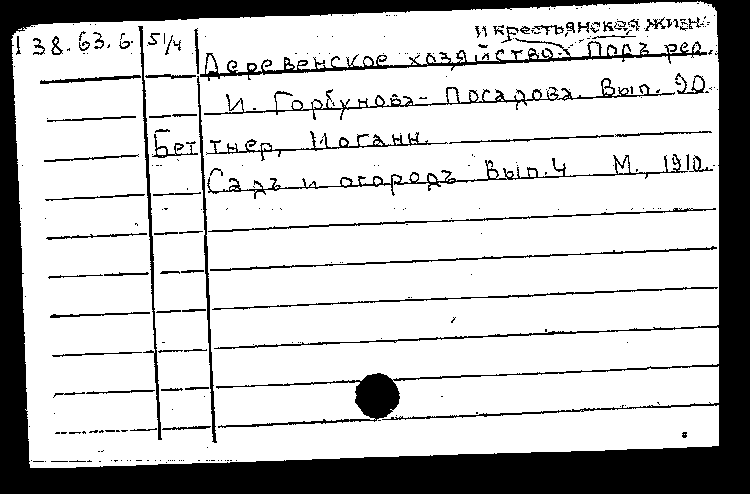 и крестьянская жизнь
138.63.6 51/4
Деревенское хозяйство Подъ ред.
И. Горбунова-Посадова. Вып. 90
Беттнер, Иоганн.
Садъ и огородъ Вып.4 М., 1910.